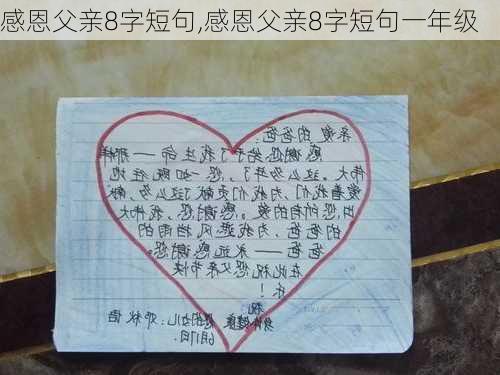 感恩父亲8字短句,感恩父亲8字短句一年级
亲爱的爸爸:
感谢您给予了我生命—那样
伟大。这么多年了,您一如既往地
爱着我们,为我们贡献了这么多,献
出您所有的爱。感谢您,我伟大
的爸爸,为我遮风挡雨的
爸爸——永远感谢您。
在此祝您父亲节快
乐!
祝
身体健康
您的女儿:邓秋语
6月17日.